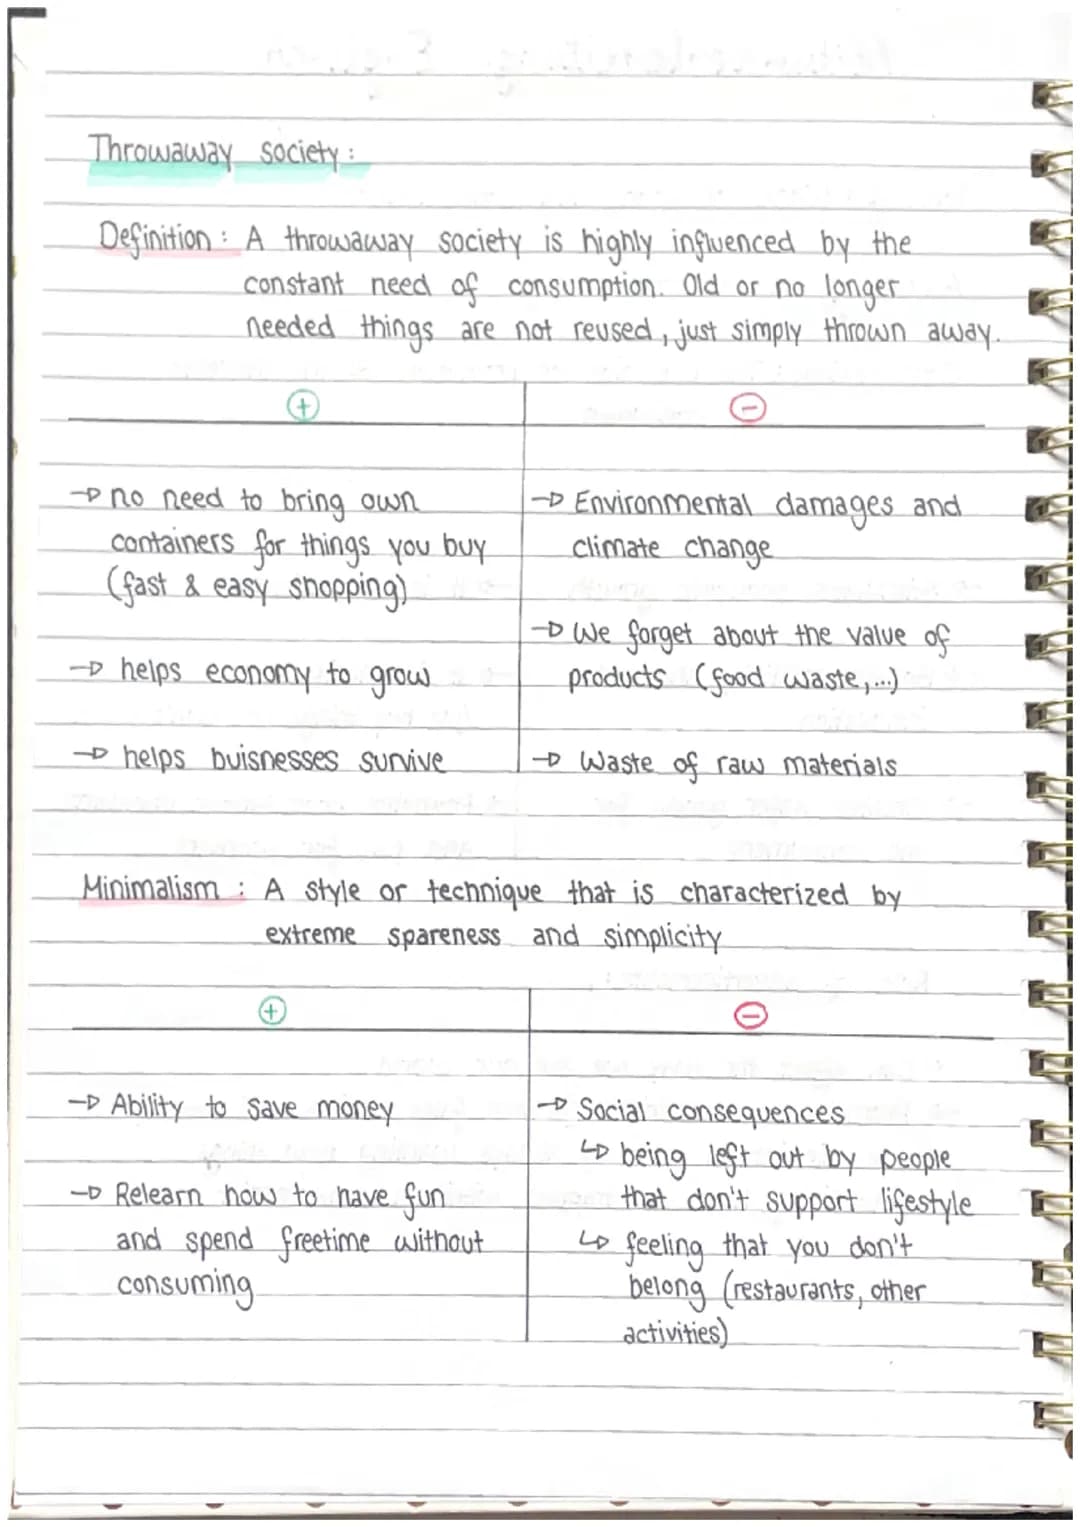 Throwaway society:
Definition: A throwaway society is highly influenced by the
constant need of consumption. Old or no longer
needed things are not reused, just simply thrown away.
+
-
→ no need to bring own
containers for things you buy
(fast & easy shopping)
→ helps economy to grow
→ helps buisnesses survive
→ Environmental damages and
climate change
→ We forget about the value of
products (food waste,...)
→ Waste of raw materials
Minimalism: A style or technique that is characterized by
extreme spareness and simplicity
+
-
→ Ability to save money
→ Relearn how to have fun
and spend freetime without
consuming
→ Social consequences
↳ being left out by people
that don't support lifestyle
↳ feeling that you don't
belong (restaurants, other
activities)